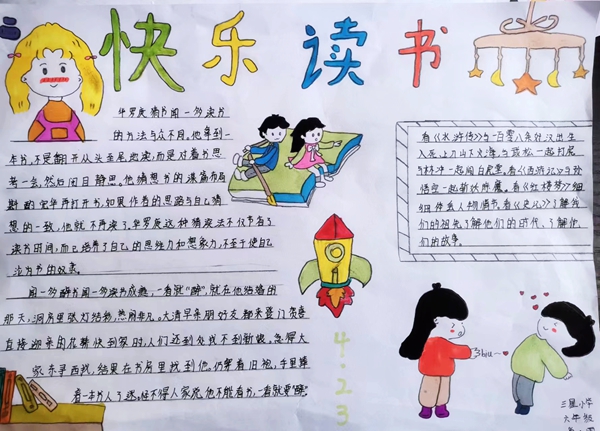 快乐读书
华罗庚猜书闻一多读书
的方法与众不同。他拿到一
本书,不是翻开从头至尾地读,而是对着书思
考一会,然后闭目静思。他猜想书的谋篇布局
斟酌完毕再打开书,如果作者的思路与自己猜
想的一致,他就不再读了。华罗庚这种猜读法不仅节省了
读书时间,而且培养了自己的思维力和想象力,不至于使自己
沦为书的奴隶。
闻一多醉书闻一多读书成瘾,一看就“醉”,就在他结婚的
那天,洞房里张灯结彩,热闹非凡。大清早亲朋好友都来登门贺喜
直接迎亲的花轿快到家时,人们还到处找不到新郎。急得大
家东寻西找,结果在书房里找到他,仍穿着旧袍,手里捧
着一本书入了迷,怪不得人家说他不能看书,一看就要“醉”
看《水浒传》与一百零八条好汉出生
入死上刀山下火海,与武松一起打虎
与林冲一起闯白虎堂。看《西游记》与孙
悟空一起斩妖除魔。看《红楼梦》细
细体会人物情节。看《史记》了解我
们的祖先了解他们的时代,了解他
们的故事。
4.23
biu~
三星小学
六年级